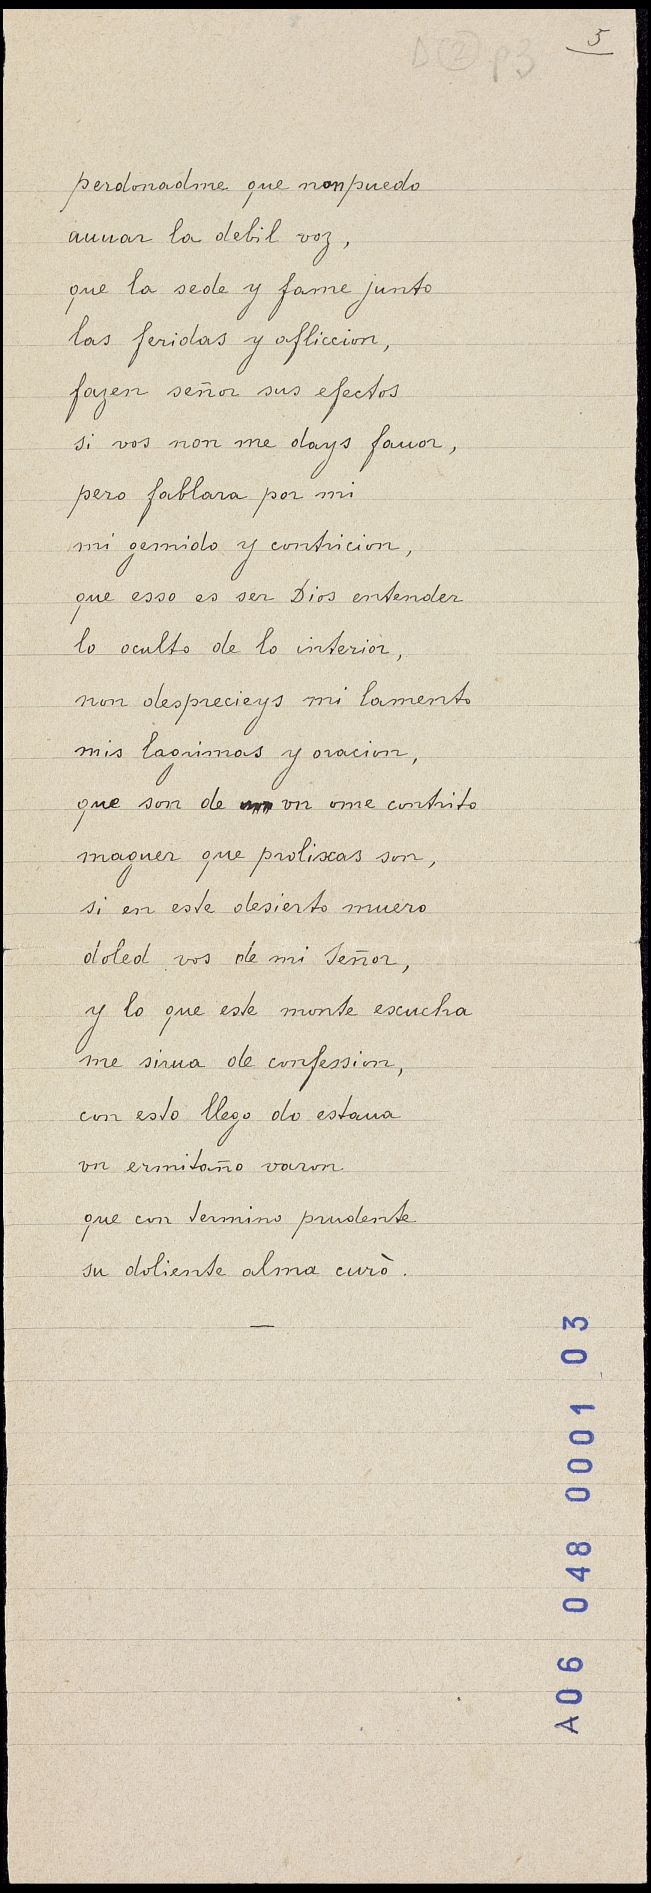 D (2) p3
5
perdonadme que non puedo
auuar la debil voz,
que la sede y fame junto
las feridas y afliccion,
fazen señor sus efectos
si vos non me days fauor,
pero fablara por mi
mi gemido y contricion,
que esso es ser Dios entender
lo oculto de lo interior,
non desprecieys mi lamento
mis lagrimas y oracion,
que son de vn ome contrito
maguer que prolixas son,
si en este desierto muero
doled vos de mi Señor,
y lo que este monte escucha
me sirua de confession,
con esto llego do estaua
vn ermitaño varon
que con termino prudente
su doliente alma curò.
—
A06 048 0001 03